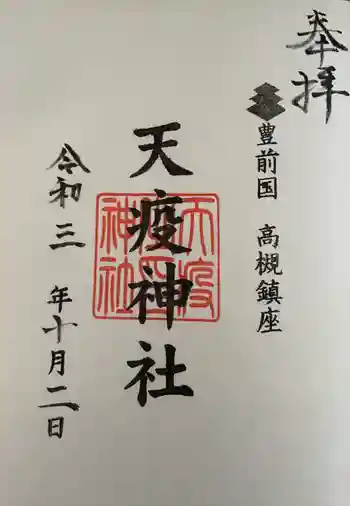 奉拝
豊前国 高槻鎮座
天疫神社
天疫神社印
令和三年十月二日